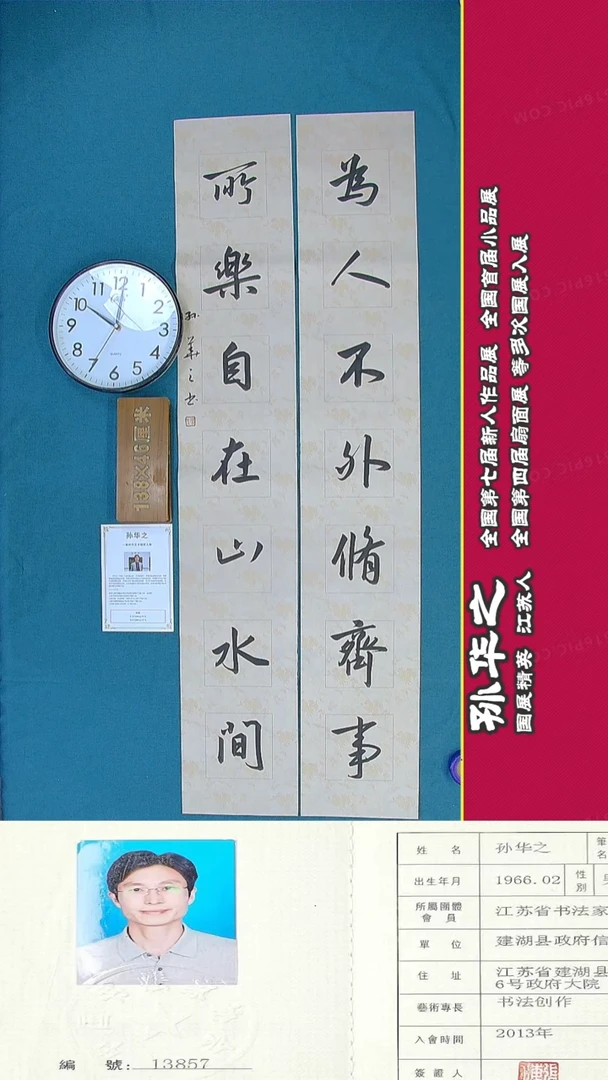 为人不外脩齊事
所樂自在山水間
孙華之书
12
1
2
3
4
5
6
7
8
9
10
11
QUARTZ
138×46厘米
孙华之
孙华之
国展精英 江苏人
全国第七届新人作品展 全国首届小品展
全国第四届扇面展 等多次国展入展
姓 名 孙华之 筆名
出生年月 1966.02 性別
所屬團體會員 江苏省书法家
單 位 建湖县政府信
住 址 江苏省建湖县
6号政府大院
藝術專長 书法创作
入會時間 2013年
簽證人
編 號: 13857